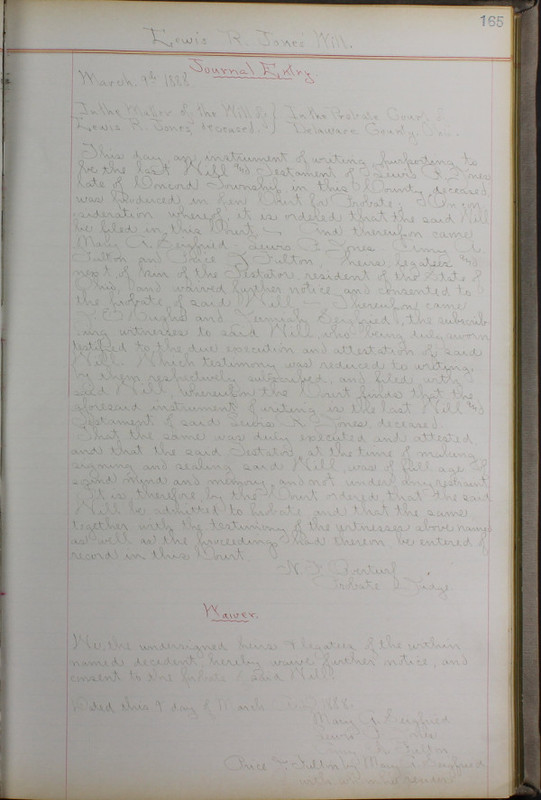 165
Lewis R. Jones Will.
Journal Entry
March. 9th 1888
In the Matter of the Will of } In the Probate Court of
Lewis R. Jones deceased. } Delaware County, Ohio.
This day, an instrument of writing purporting to
be the last Will and Testament of Lewis R. Jones
late of Concord Township, in this County, deceased
was produced in open Court for Probate; Upon con
sideration whereof, it is ordered that the said Will
be filed in this Court. And thereupon came
Mary A. Seigfried, Lewis P. Jones,
Fulton and Price F. Fulton, heirs legatees and
next of kin of the Testator, resident of the State of
Ohio, and waived further notice and consented to
the probate of said Will. Thereupon came
and Jeremiah Seigfried, the subscrib
ing witnesses to said Will, who being duly sworn
testified to the due execution and attestation of said
Will. Which testimony was reduced to writing,
by them respectively subscribed, and filed with
said Will, whereupon the Court finds that the
aforesaid instrument of writing is the last Will and
Testament of said Lewis R. Jones deceased.
That the same was duly executed and attested
and that the said Testator, at the time of making
signing and sealing said Will, was of full age of
sound mind and memory, and not under any restraint
It is therefore by the Court ordered, that the said
Will be admitted to Probate, and that the same
together with the testimony of the witnesses above named
as well as the proceedings had thereon, be entered of
record in this Court.
N. F. Overturf
Probate Judge
Waiver.
We, the undersigned heirs & legatees of the within
named decedent, hereby waive further notice, and
consent to the probate of said Will.
Dated this 9 day of March 1888.
Mary A. Seigfried
Lewis P. Jones
Fulton
Price F. Fulton by Mary A. Seigfried